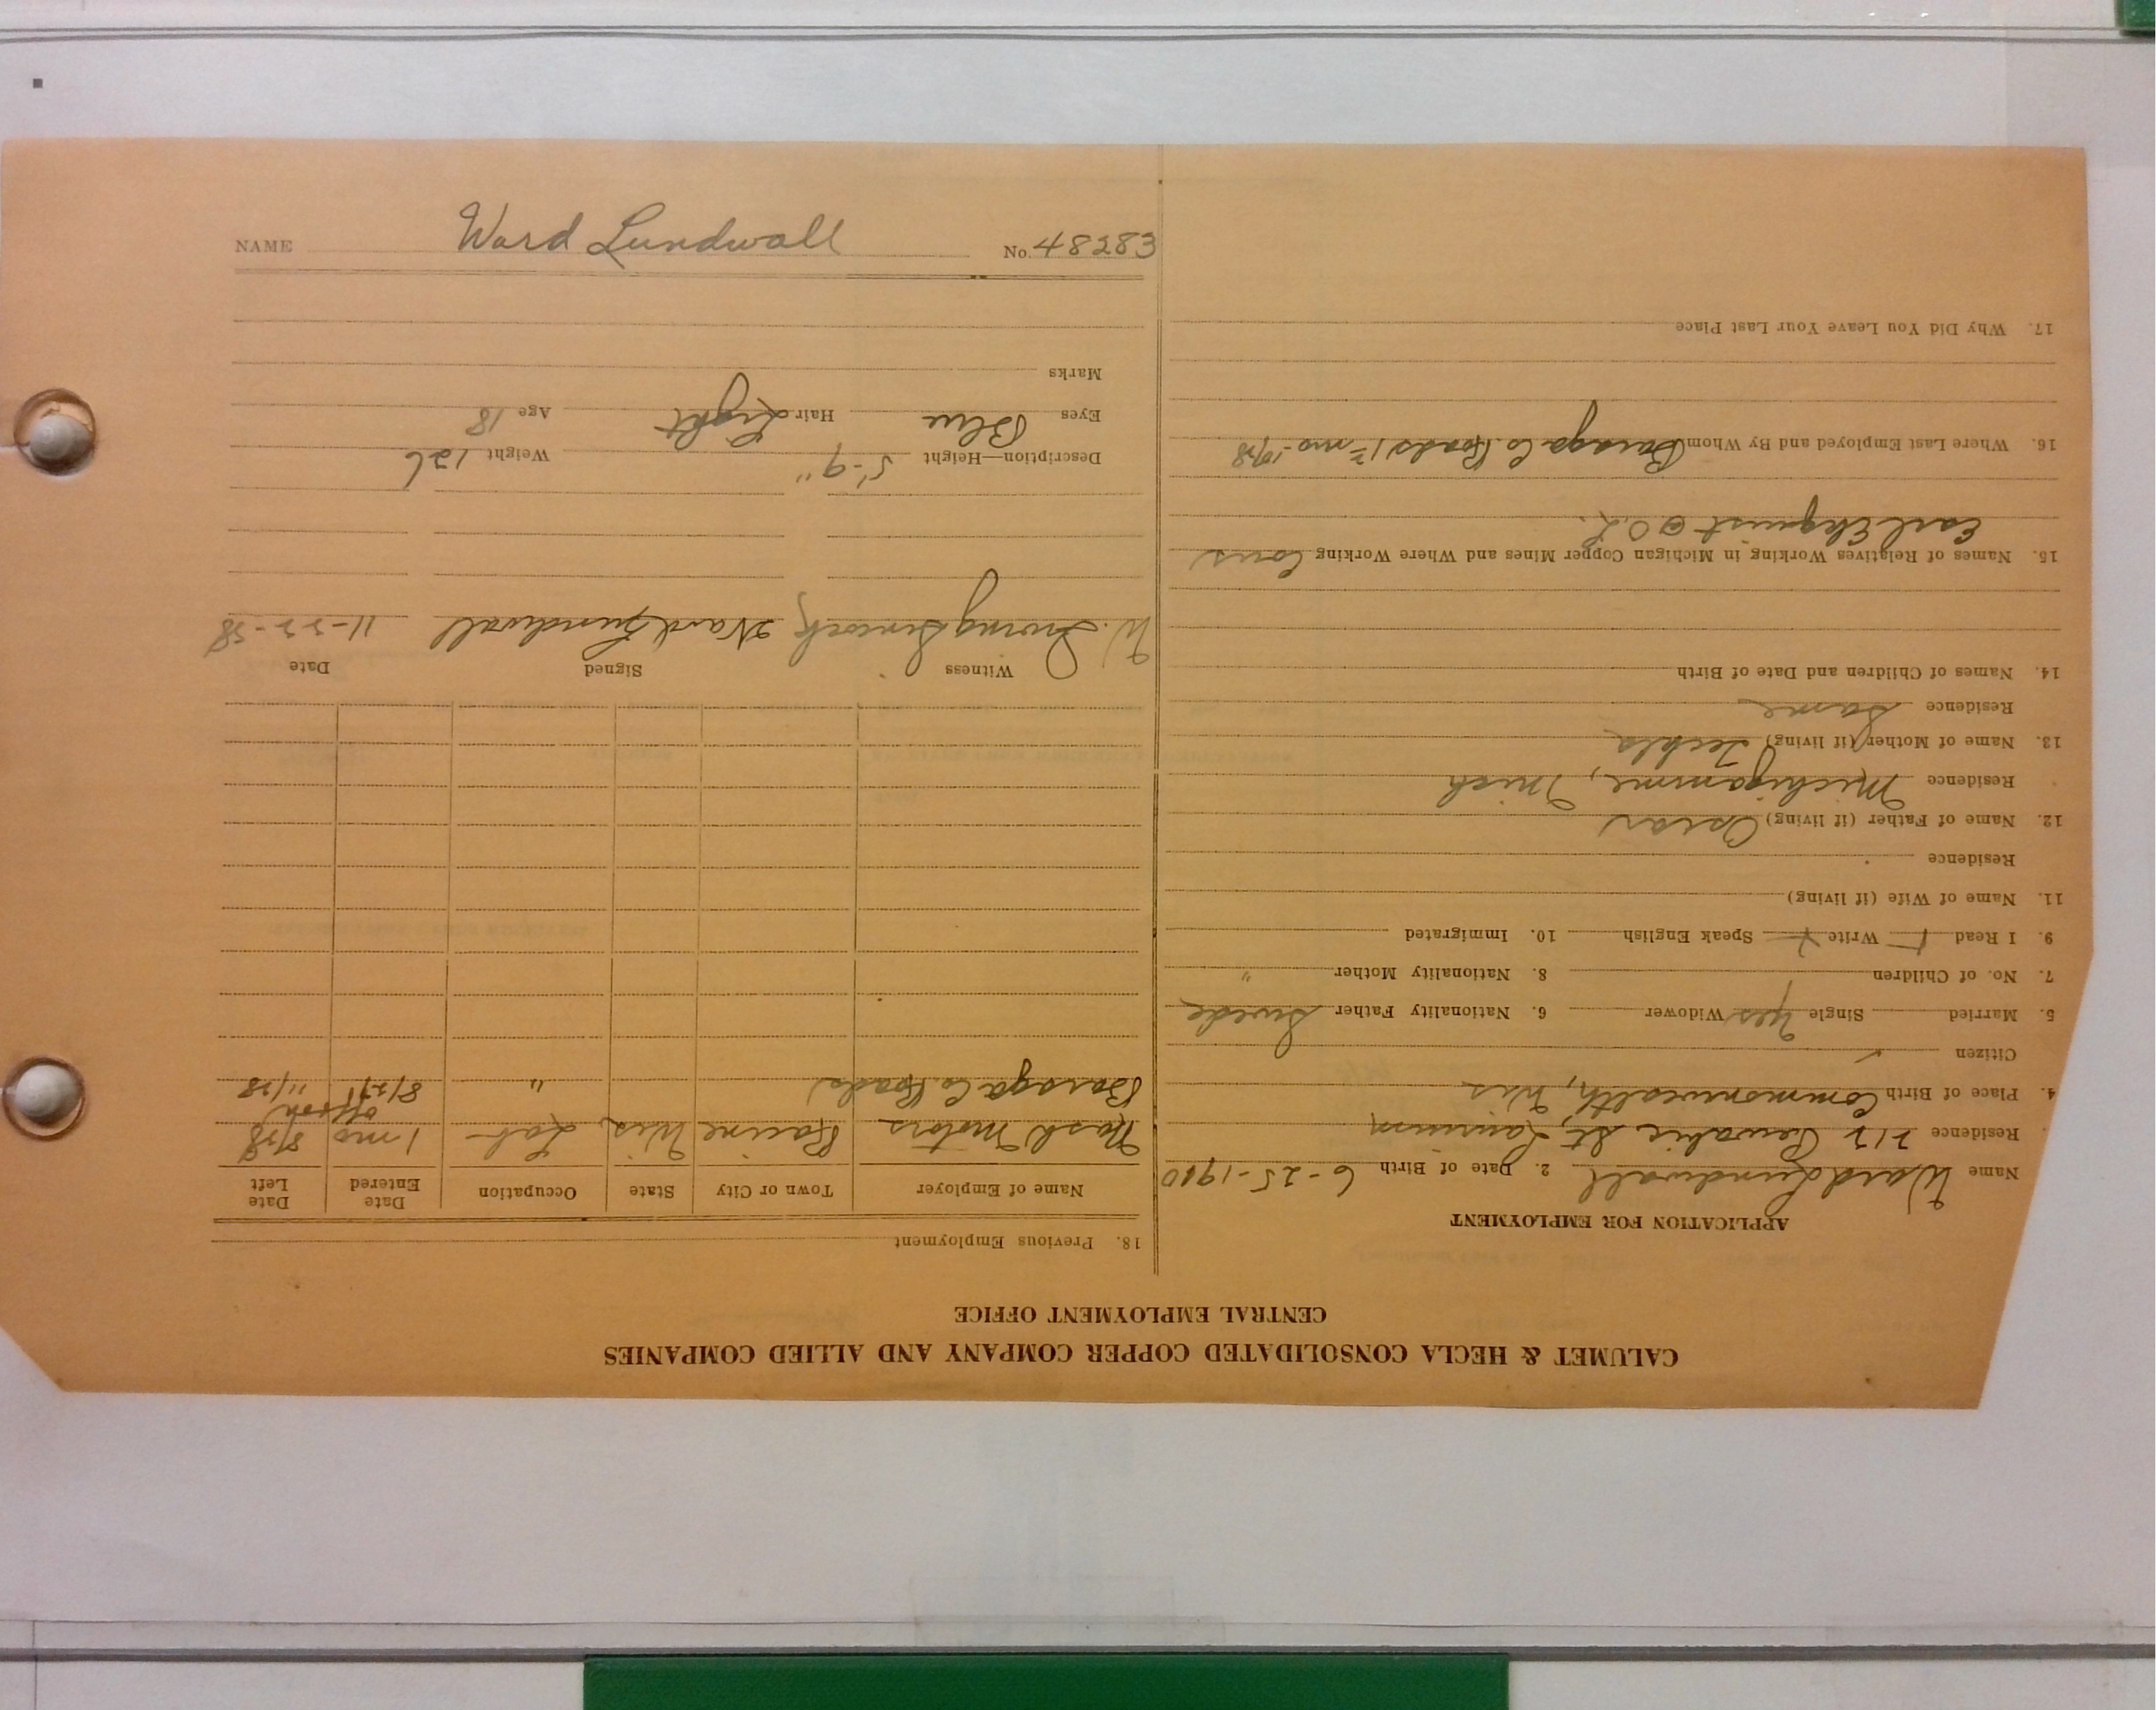 NAME Ward Lundwall No. 48283
CALUMET & HECLA CONSOLIDATED COPPER COMPANY AND ALLIED COMPANIES
CENTRAL EMPLOYMENT OFFICE
APPLICATION FOR EMPLOYMENT
Name Ward Lundwall 2. Date of Birth 6-25-1910
Residence St, Laurium
4. Place of Birth Commonwealth, Wis
Citizen ✓
5. Married Single Yes Widower 6. Nationality Father Swede
7. No. of Children 8. Nationality Mother "
9. I Read Write Speak English 10. Immigrated
11. Name of Wife (if living)
Residence
12. Name of Father (if living) Oscar
Residence Michigamme, Mich
13. Name of Mother (if living) Teckla
Residence Same
14. Names of Children and Date of Birth
15. Names of Relatives Working in Michigan Copper Mines and Where Working Cous
Earl Ekquist @ O.L.
16. Where Last Employed and By Whom Baraga Co. Roads mo-
17. Why Did You Leave Your Last Place
18. Previous Employment
Name of Employer Town or City State Occupation Date Entered Date Left
Nash Motors Racine Wis. Lab- 1 mo 8/28
Baraga Co. Roads " off & on 8/27 11/28
Witness Signed Date
W. Ward Lundwall 11-22-28
Description—Height 5'-9" Weight 126
Eyes Blue Hair Light Age 18
Marks